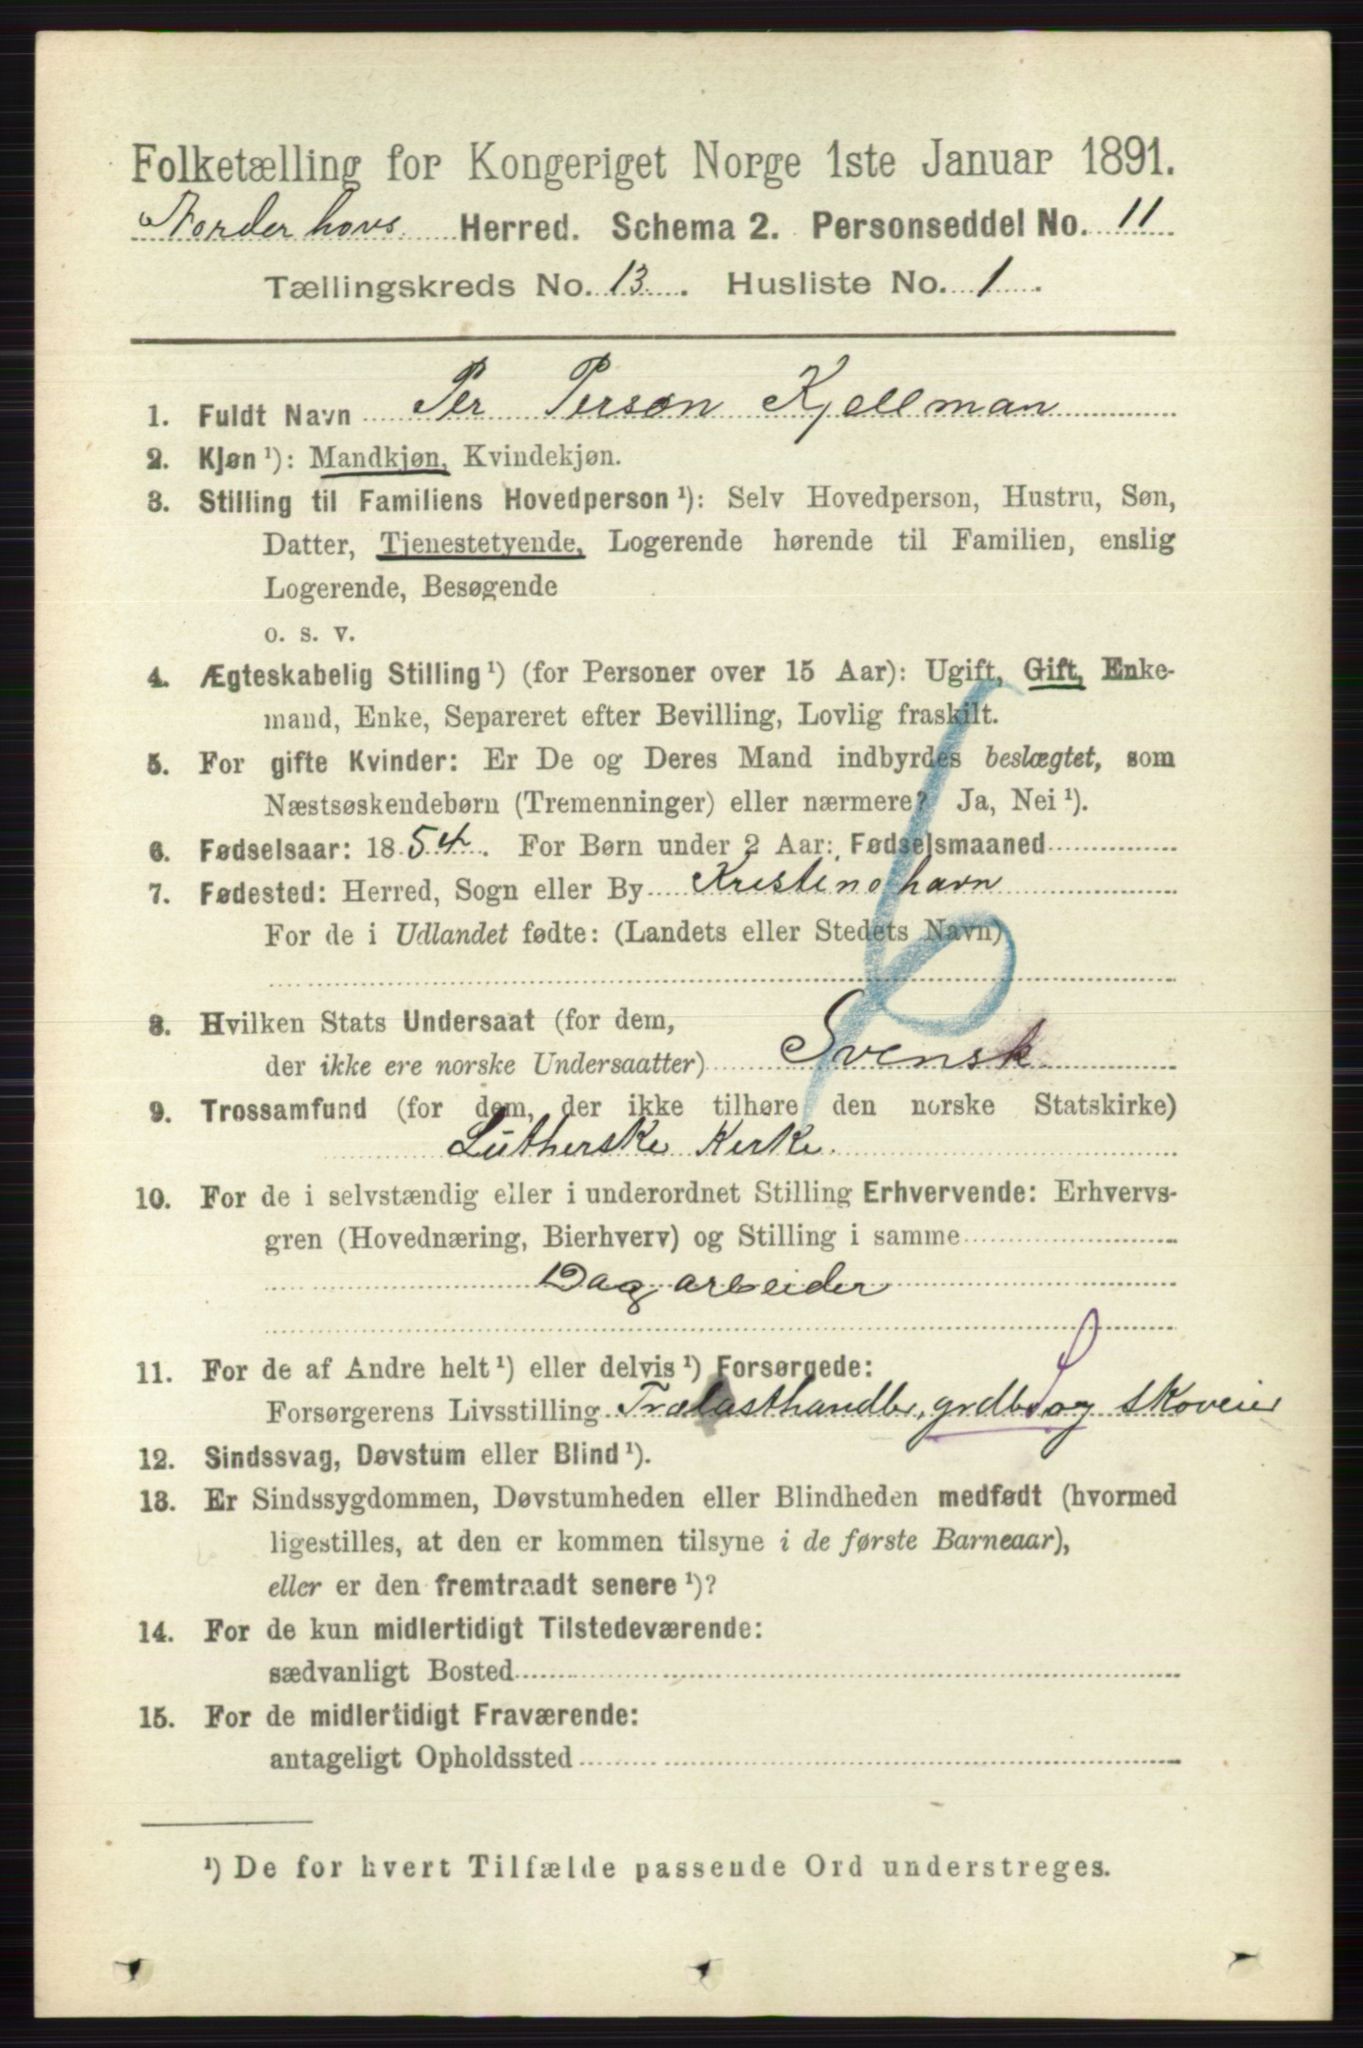 Folketælling for Kongeriget Norge 1ste Januar 1891.
Norderhovs Herred. Schema 2. Personseddel No. 11
Tællingskreds No. 13. Husliste No. 1.
1. Fuldt Navn Per Person Kjellman
2. Kjøn ¹): Mandkjøn, Kvindekjøn.
3. Stilling til Familiens Hovedperson ¹): Selv Hovedperson, Hustru, Søn,
Datter, Tjenestetyende, Logerende hørende til Familien, enslig
Logerende, Besøgende
o. s. v.
4. Ægteskabelig Stilling ¹) (for Personer over 15 Aar): Ugift, Gift, Enke-
mand, Enke, Separeret efter Bevilling, Lovlig fraskilt.
5. For gifte Kvinder: Er De og Deres Mand indbyrdes beslægtet, som
Næstsøskendebørn (Tremenninger) eller nærmere? Ja, Nei ¹).
6. Fødselsaar: 1854. For Børn under 2 Aar: Fødselsmaaned
7. Fødested: Herred, Sogn eller By Kristinehavn
For de i Udlandet fødte: (Landets eller Stedets Navn)
8. Hvilken Stats Undersaat (for dem,
der ikke ere norske Undersaatter) Svensk
9. Trossamfund (for dem, der ikke tilhøre den norske Statskirke)
Lutherske Kirke.
10. For de i selvstændig eller i underordnet Stilling Erhvervende: Erhvervs-
gren (Hovednæring, Bierhverv) og Stilling i samme
Dagarbeider
11. For de af Andre helt ¹) eller delvis ¹) Forsørgede:
Forsørgerens Livsstilling Trælasthandler, grdbr og skoveier
12. Sindssvag, Døvstum eller Blind ¹).
13. Er Sindssygdommen, Døvstumheden eller Blindheden medfødt (hvormed
ligestilles, at den er kommen tilsyne i de første Barneaar),
eller er den fremtraadt senere ¹)?
14. For de kun midlertidigt Tilstedeværende:
sædvanligt Bosted
15. For de midlertidigt Fraværende:
antageligt Opholdssted
¹) De for hvert Tilfælde passende Ord understreges.